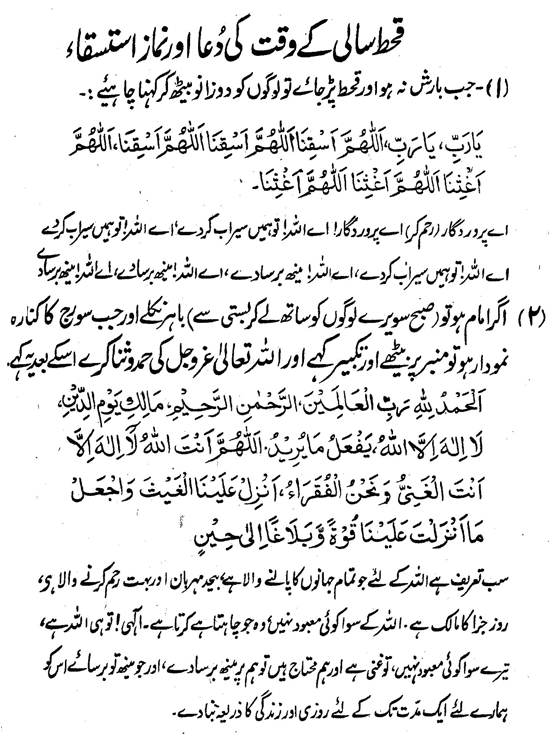 قحط سالی کے وقت کی دُعا اور نماز استسقاء
(۱)- جب بارش نہ ہو اور قحط پڑ جائے تو لوگوں کو دوزانو بیٹھ کر کہنا چاہیئے :-
يَارَبِّ، يَارَبِّ، اَللّٰهُمَّ اَسْقِنَا اَللّٰهُمَّ اَسْقِنَا اَللّٰهُمَّ اَسْقِنَا، اَللّٰهُمَّ
اَغِثْنَا اَللّٰهُمَّ اَغِثْنَا اَللّٰهُمَّ اَغِثْنَا۔
اے پروردگار (رحم کر) اے پروردگار! اے اللہ! تو ہمیں سیراب کردے، اے اللہ! تو ہمیں سیراب کردے
اے اللہ! تو ہمیں سیراب کردے، اے اللہ! مینھ برسادے، اے اللہ! مینھ برسادے، اے اللہ! مینھ برسادے
(۲) اگر امام ہو تو (صبح سویرے لوگوں کو ساتھ لے کر بستی سے) باہر نکلے اور جب سورج کا کنارہ
نمودار ہو تو منبر پر بیٹھے اور تکبیر کہے اور اللہ تعالیٰ عزوجل کی حمد و ثنا کرے اسکے بعد یہ کہے
اَلْحَمْدُ لِلّٰهِ رَبِّ الْعَالَمِيْنَ، الرَّحْمٰنِ الرَّحِيْمِ، مَالِكِ يَوْمِ الدِّيْنِ،
لَا اِلٰهَ اِلَّا اللهُ، يَفْعَلُ مَا يُرِيْدُ، اَللّٰهُمَّ اَنْتَ اللهُ لَا اِلٰهَ اِلَّا
اَنْتَ الْغَنِيُّ وَنَحْنُ الْفُقَرَاءُ، اَنْزِلْ عَلَيْنَا الْغَيْثَ وَاجْعَلْ
مَا اَنْزَلْتَ عَلَيْنَا قُوَّةً وَّبَلَاغًا اِلٰى حِيْنٍ
سب تعریف ہے اللہ کے لئے جو تمام جہانوں کا پالنے والا ہے، بیحد مہربان اور بہت رحم کرنے والا ہی،
روز جزا کا مالک ہے، اللہ کے سوا کوئی معبود نہیں وہ جو چاہتا ہے کرتا ہے۔ الٰہی! تو ہی اللہ ہے،
تیرے سوا کوئی معبود نہیں، تو غنی ہے اور ہم محتاج ہیں تو ہم پر مینھ برسادے، اور جو مینھ تو برسائے اس کو
ہمارے لئے ایک مدّت تک کے لئے روزی اور زندگی کا ذریعہ بنادے۔